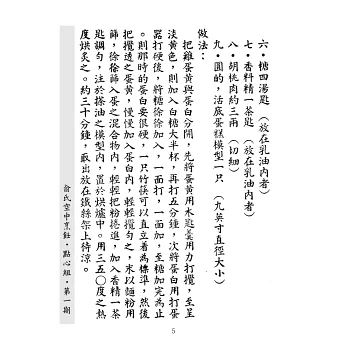 六・糖四湯匙 (放在乳油內者)
七・香料精一茶匙 (放在乳油內者)
八・胡桃肉約三兩 (切細)
九・圓的，活底蛋糕模型一只 (九英寸直徑大小)
做法：
把雞蛋黃與蛋白分開，先將蛋黃用木匙羹用力打攪，至呈
淡黃色，則加入白糖大半杯，再打五分鐘，次將蛋白用打蛋
器打硬後，將糖徐徐加入，一面打，一面加，至糖加完為止
。則那時的蛋白要很硬，一只竹筷可以直立着為標準，然後
把攪透之蛋黃，慢慢加入蛋白內，輕輕攪勻之，末以麵粉用
篩，徐徐篩入蛋之混合物內，輕輕把粉捲進，加入香精一茶
匙調勻，注於搽油之模型內，置於烘爐中。用三五〇度之熱
度烘炙之。約三十分鐘，取出放在鐵絲架上待涼。
俞氏空中烹飪・點心組・第一期
5